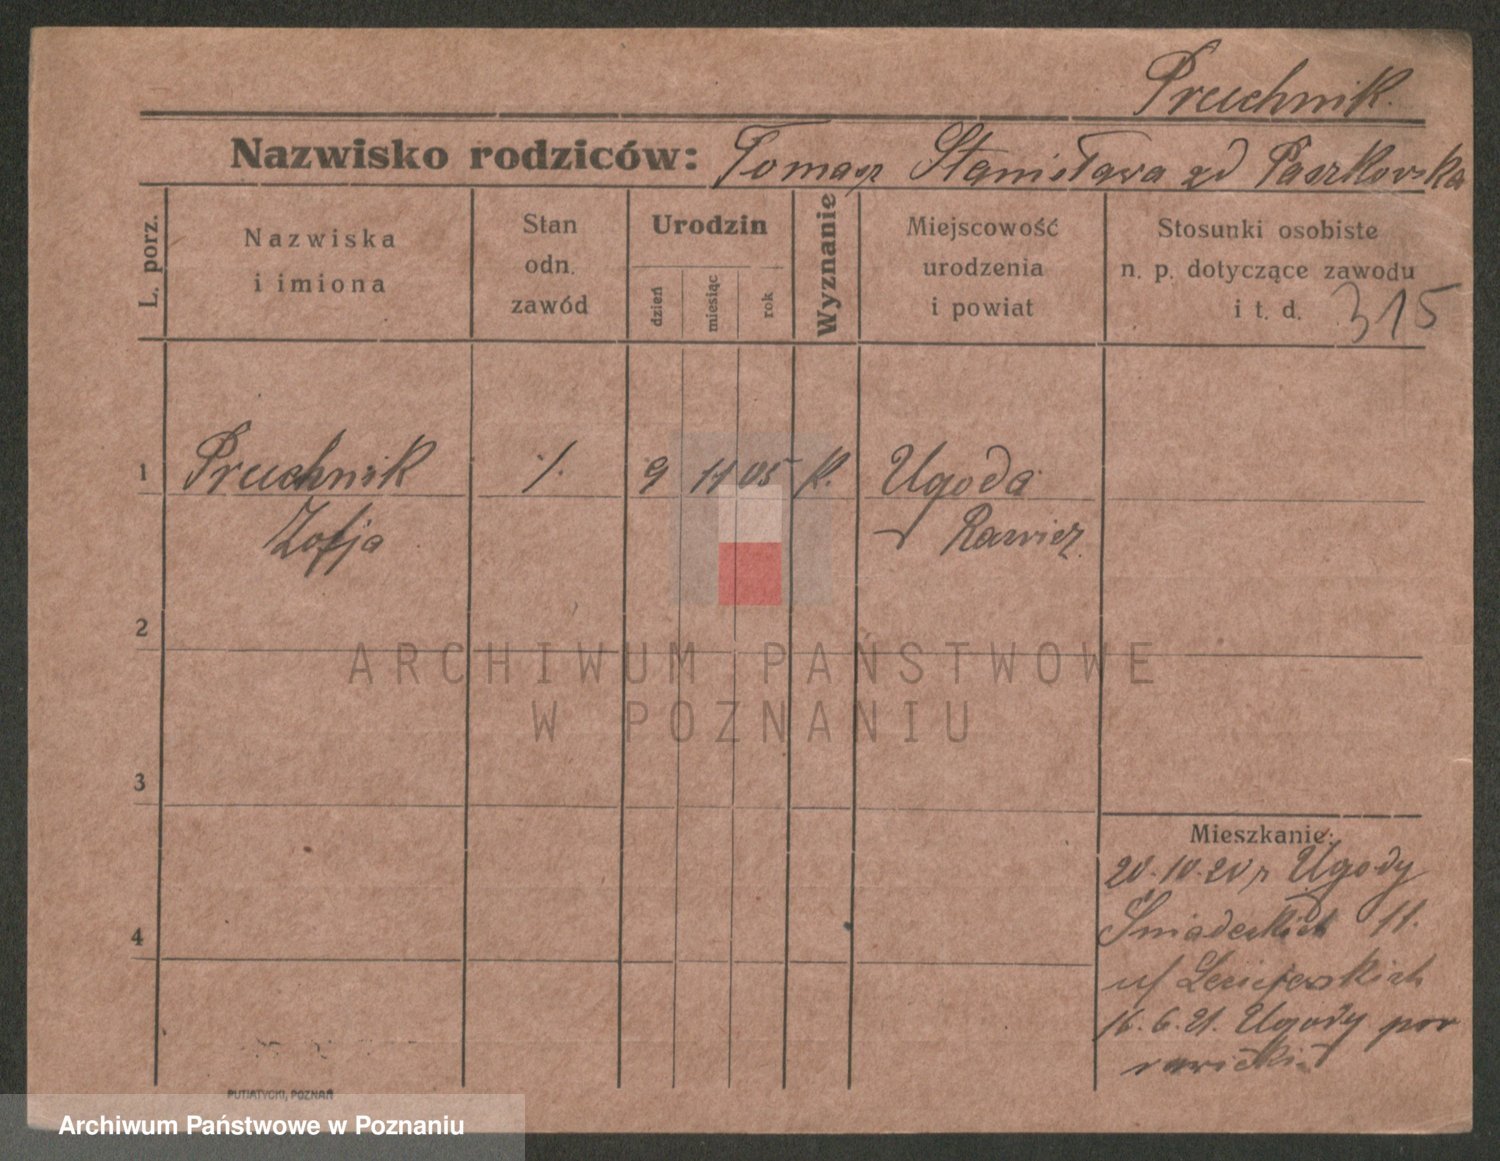 Pruchnik.
Nazwisko rodziców: Tomasz Stanisława zd Paszkowska
L. porz.
Nazwiska
i imiona
Stan
odn.
zawód
Urodzin
dzień
miesiąc
rok
Wyznanie
Miejscowość
urodzenia
i powiat
Stosunki osobiste
n. p. dotyczące zawodu
i t. d. 315
1 Pruchnik /. 9 11 05 k. Ugoda
Zofja Rawicz
2
3
4
Mieszkanie:
20.10.20 r Ugody
Śniadeckich 11.
16.6.21. Ugody pow
rawicki
PUTIATYCKI, POZNAŃ
ARCHIWUM PAŃSTWOWE
W POZNANIU
Archiwum Państwowe w Poznaniu